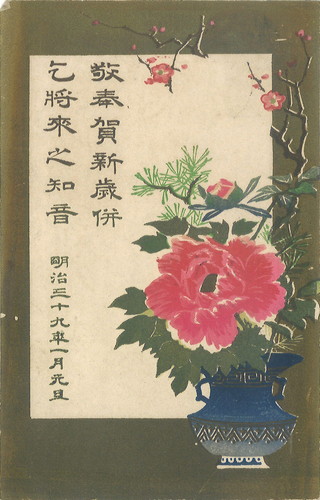 敬奉賀新歳併
乞將來之知音
明治三十九年一月元旦